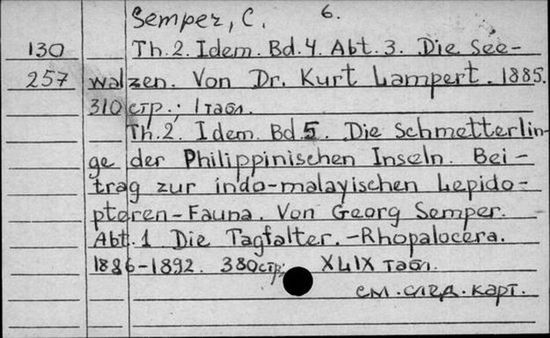 Semper, C. 6.
130 Th.2. Idem. Bd.4. Abt.3. Die See-
257 walzen. Von Dr. Kurt Lampert. 1885.
310 стр.; 1 табл.
Th.2. Idem. Bd.5. Die Schmetterlin-
ge der Philippinischen Inseln. Bei-
trag zur indo-malayischen Lepido-
pteren-Fauna. Von Georg Semper.
Abt.1 Die Tagfalter. -Rhopalocera.
1886-1892. 380стр; XLIX табл.
см. след. карт.